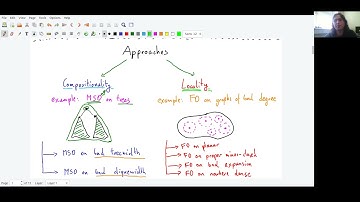 Approaches
Compositionality
Locality
example: MSO on trees
example: FO on graphs of bnd degree
MSO on bnd treewidth
MSO on bnd cliquewidth
FO on planar
FO on proper minor-closed
FO on bnd expansion
FO on nowhere dense